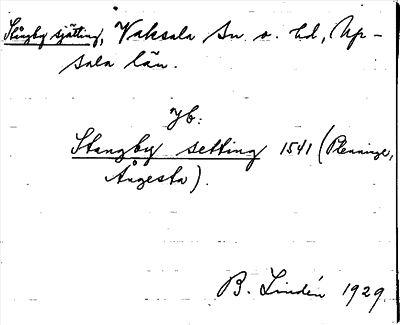 Slångby sjätting, Vaksala sn o. hd, Up-
sala län.
Jb:
Stangby setting 1541 (Plenninge,
Årgesta).
B. Lindén 1929.